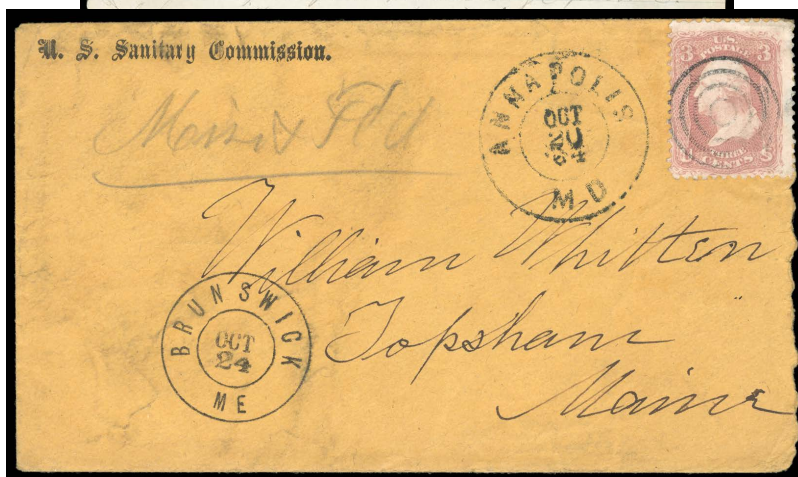 U. S. Sanitary Commission.
ANNAPOLIS
OCT
20
'64
MD
3 U.S. 3
POSTAGE
THREE
U CENTS S
William Whitten
Topsham
Maine
BRUNSWICK
OCT
24
ME